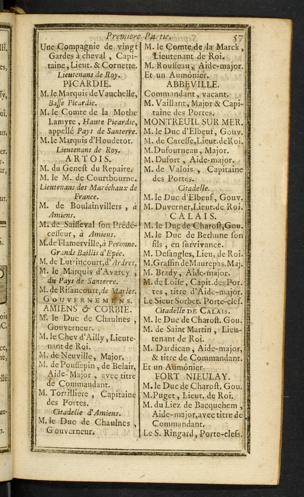 Premiere Partie. 57
Une Compagnie de vingt
Gardes à cheval, Capi-
taine, Lieut. & Cornette.
Lieutenans de Roy.
PICARDIE.
M. le Marquis de Vauchelle,
Basse Picardie.
M. le Comte de la Mothe
Lamyre, Haute Picardie,
appellé Pays de Santerre.
M. le Marquis d'Houdetot.
Lieutenans de Roy.
ARTOIS.
M. du Genest du Repaire.
M. le M. de Courtbourne.
Lieutenans des Maréchaux de
France.
M. de Boulainvillers, à
Amiens.
M. de Saisseval son Prédé-
cesseur, à Amiens.
M. de Flamerville, à Peronne.
Grands Baillis d'Epée.
M. de Lutrincourt, d'Ardres.
M. le Marquis d'Avarcy,
du Pays de Santerre.
M. de Rifancourt, de Marles.
GOUVERNEMENS.
AMIENS & CORBIE.
M. le Duc de Chaulnes,
Gouverneur.
M. le Chev d'Ailly, Lieute-
nant de Roi.
M. de Neuville, Major.
M. de Pousseppin, de Belair,
Aide-Major, avec titre
de Commandant.
M. Torfilliere, Capitaine
des Portes.
Citadelle d'Amiens.
M. le Duc de Chaulnes,
Gouverneur.
M. le Comte de la Marck,
Lieutenant de Roi.
M. Rousseau, Aide-major.
Et un Aumônier.
ABBEVILLE.
Commandant, vacant.
M. Vaillant, Major & Capi-
taine des Portes.
MONTREUIL SUR MER.
M. le Duc d'Elbeuf, Gouv.
M. de Caresse, Lieut. de Roi.
M. Dufourneau, Major.
M. Dufort, Aide-major.
M. de Valois, Capitaine
des Portes.
Citadelle.
M. le Duc d'Elbeuf, Gouv.
M. Duverner, Lieut. de Roi.
CALAIS.
M. le Duc de Charost, Gou.
M. le Duc de Bethune son
fils, en survivance.
M. Desangles, Lieu. de Roi.
M. Graffin de Maurepas, Maj.
M. Brady, Aide-major.
M. de Loise, Capit. des Por-
tes, titre d'Aide-major.
Le Sieur Sorbet, Porte-clef.
Citadelle DE CALAIS.
M. le Duc de Charost. Gou.
M. de Saint Martin, Lieu-
tenant de Roi.
M. Dardican, Aide-major,
& titre de Commandant.
Et un Aumônier.
FORT NIEULAY.
M. le Duc de Charost. Gou.
M. Puget, Lieut. de Roi.
M. du Liez de Bacquehem,
Aide-major, avec titre de
Commandant.
Le S. Ringard, Porte-clefs.